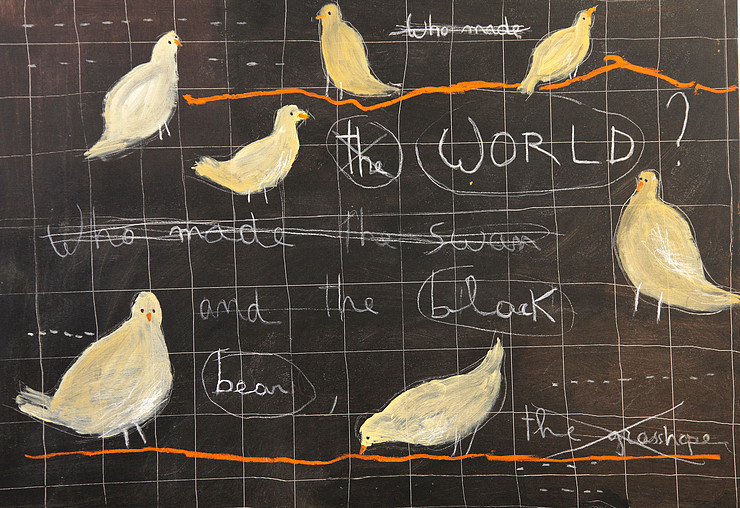 Who made
the WORLD?
Who made the swan
and the black
bear,
the grasshope